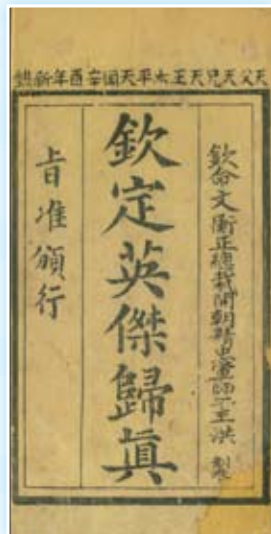 天父天兄天王太平天囯辛酉年新鐫
欽命文衡正總裁開朝精忠軍師干王洪 製
欽定英傑歸眞
旨准頒行